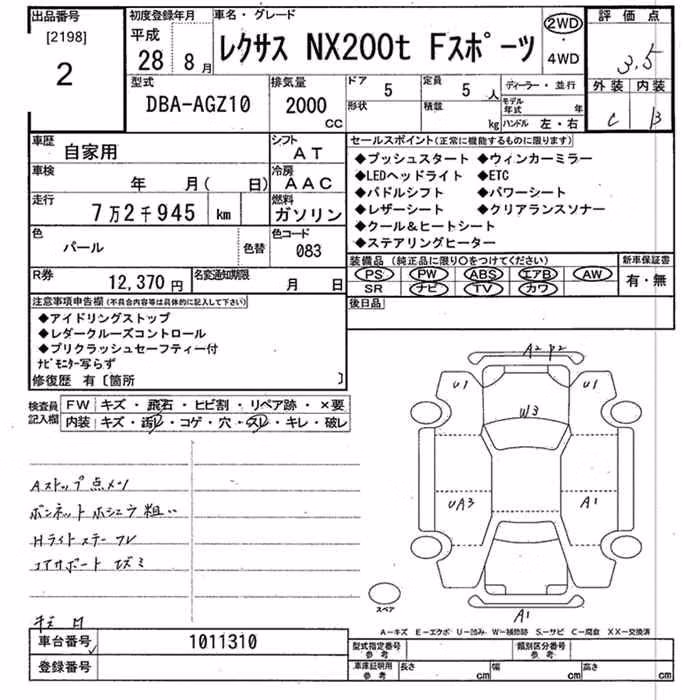 出品番号
[2198]
2
初度登録年月
平成
28年 8月
車名・グレード
レクサス NX200t Fスポーツ
2WD
・
4WD
評価点
3.5
外装 内装
C B
型式
DBA-AGZ10
排気量
2000
CC
ドア
5
定員
5 人
形状
積載
kg
ディーラー・並行
モデル年式 年
ハンドル 左・右
車歴
自家用
シフト
AT
車検
年 月( 日)
冷房
AAC
走行
7万2千945 km
燃料
ガソリン
色
パール
色替
色コード
083
R券
12,370円
名変通知期限
月 日
セールスポイント(正常に機能するものに限ります)
◆プッシュスタート ◆ウィンカーミラー
◆LEDヘッドライト ◆ETC
◆パドルシフト ◆パワーシート
◆レザーシート ◆クリアランスソナー
◆クール&ヒートシート
◆ステアリングヒーター
装備品 (純正品に限り○をつけてください)
PS PW ABS エアB AW
SR ナビ TV カワ
新車保証書
有・無
後日品
注意事項申告欄(不具合内容等は具体的に記入して下さい)
◆アイドリングストップ
◆レダークルーズコントロール
◆プリクラッシュセーフティー付
ナビモニター写らず
修復歴 有〔箇所 〕
検査員記入欄
FW キズ・飛石・ヒビ割・リペア跡・×要
内装 キズ・汚レ・コゲ・穴・スレ・キレ・破レ
Aストップ点メツ
ボンネットホシュウ粗い
Hライトステーワレ
コアサポートヒズミ
A2 P2
U1
U1
W3
UA3
A1
A1
スペア
A-キズ E-エクボ U-凹み W-補修跡 S-サビ C-腐食 XX-交換済
車台番号
1011310
登録番号
型式指定番号
参考
類別区分番号
参考
車庫証明用
参考
長さ cm
幅 cm
高さ cm